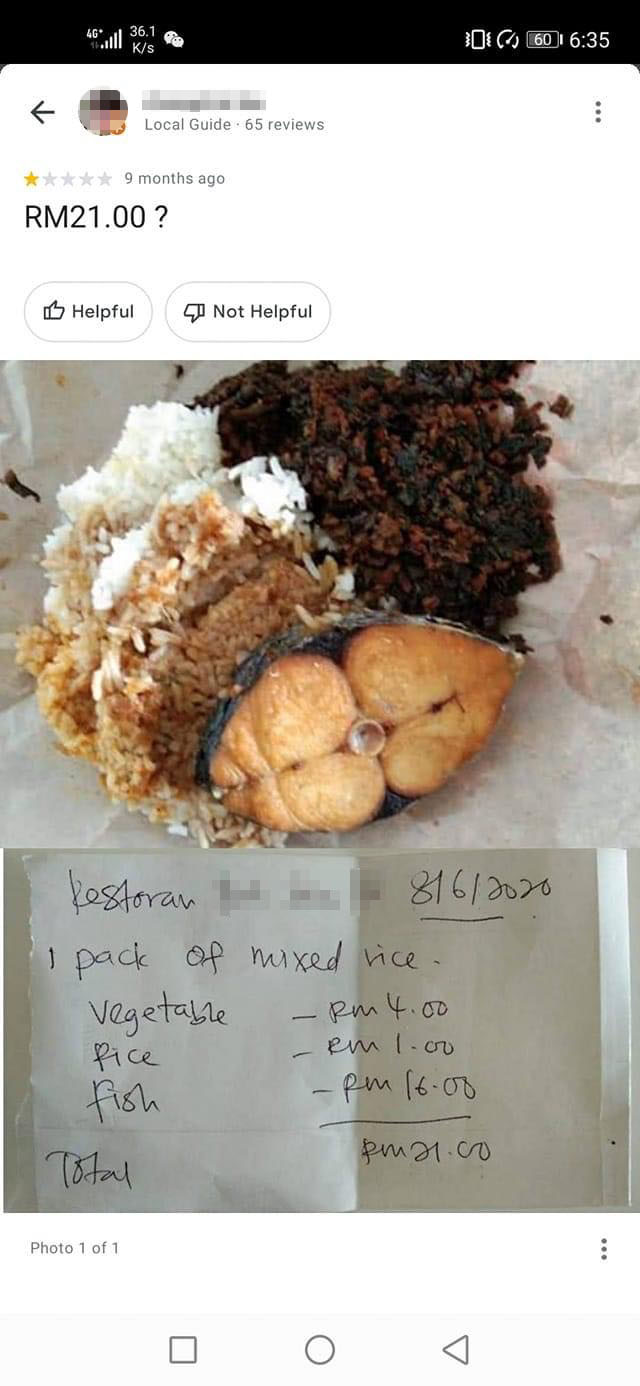 4G 36.1 K/s 60 6:35
Local Guide · 65 reviews
9 months ago
RM21.00 ?
Helpful Not Helpful
Restoran 8/6/2020
1 pack of mixed rice.
Vegetable — RM 4.00
Rice — RM 1.00
Fish — RM 16.00
Total RM21.00
Photo 1 of 1